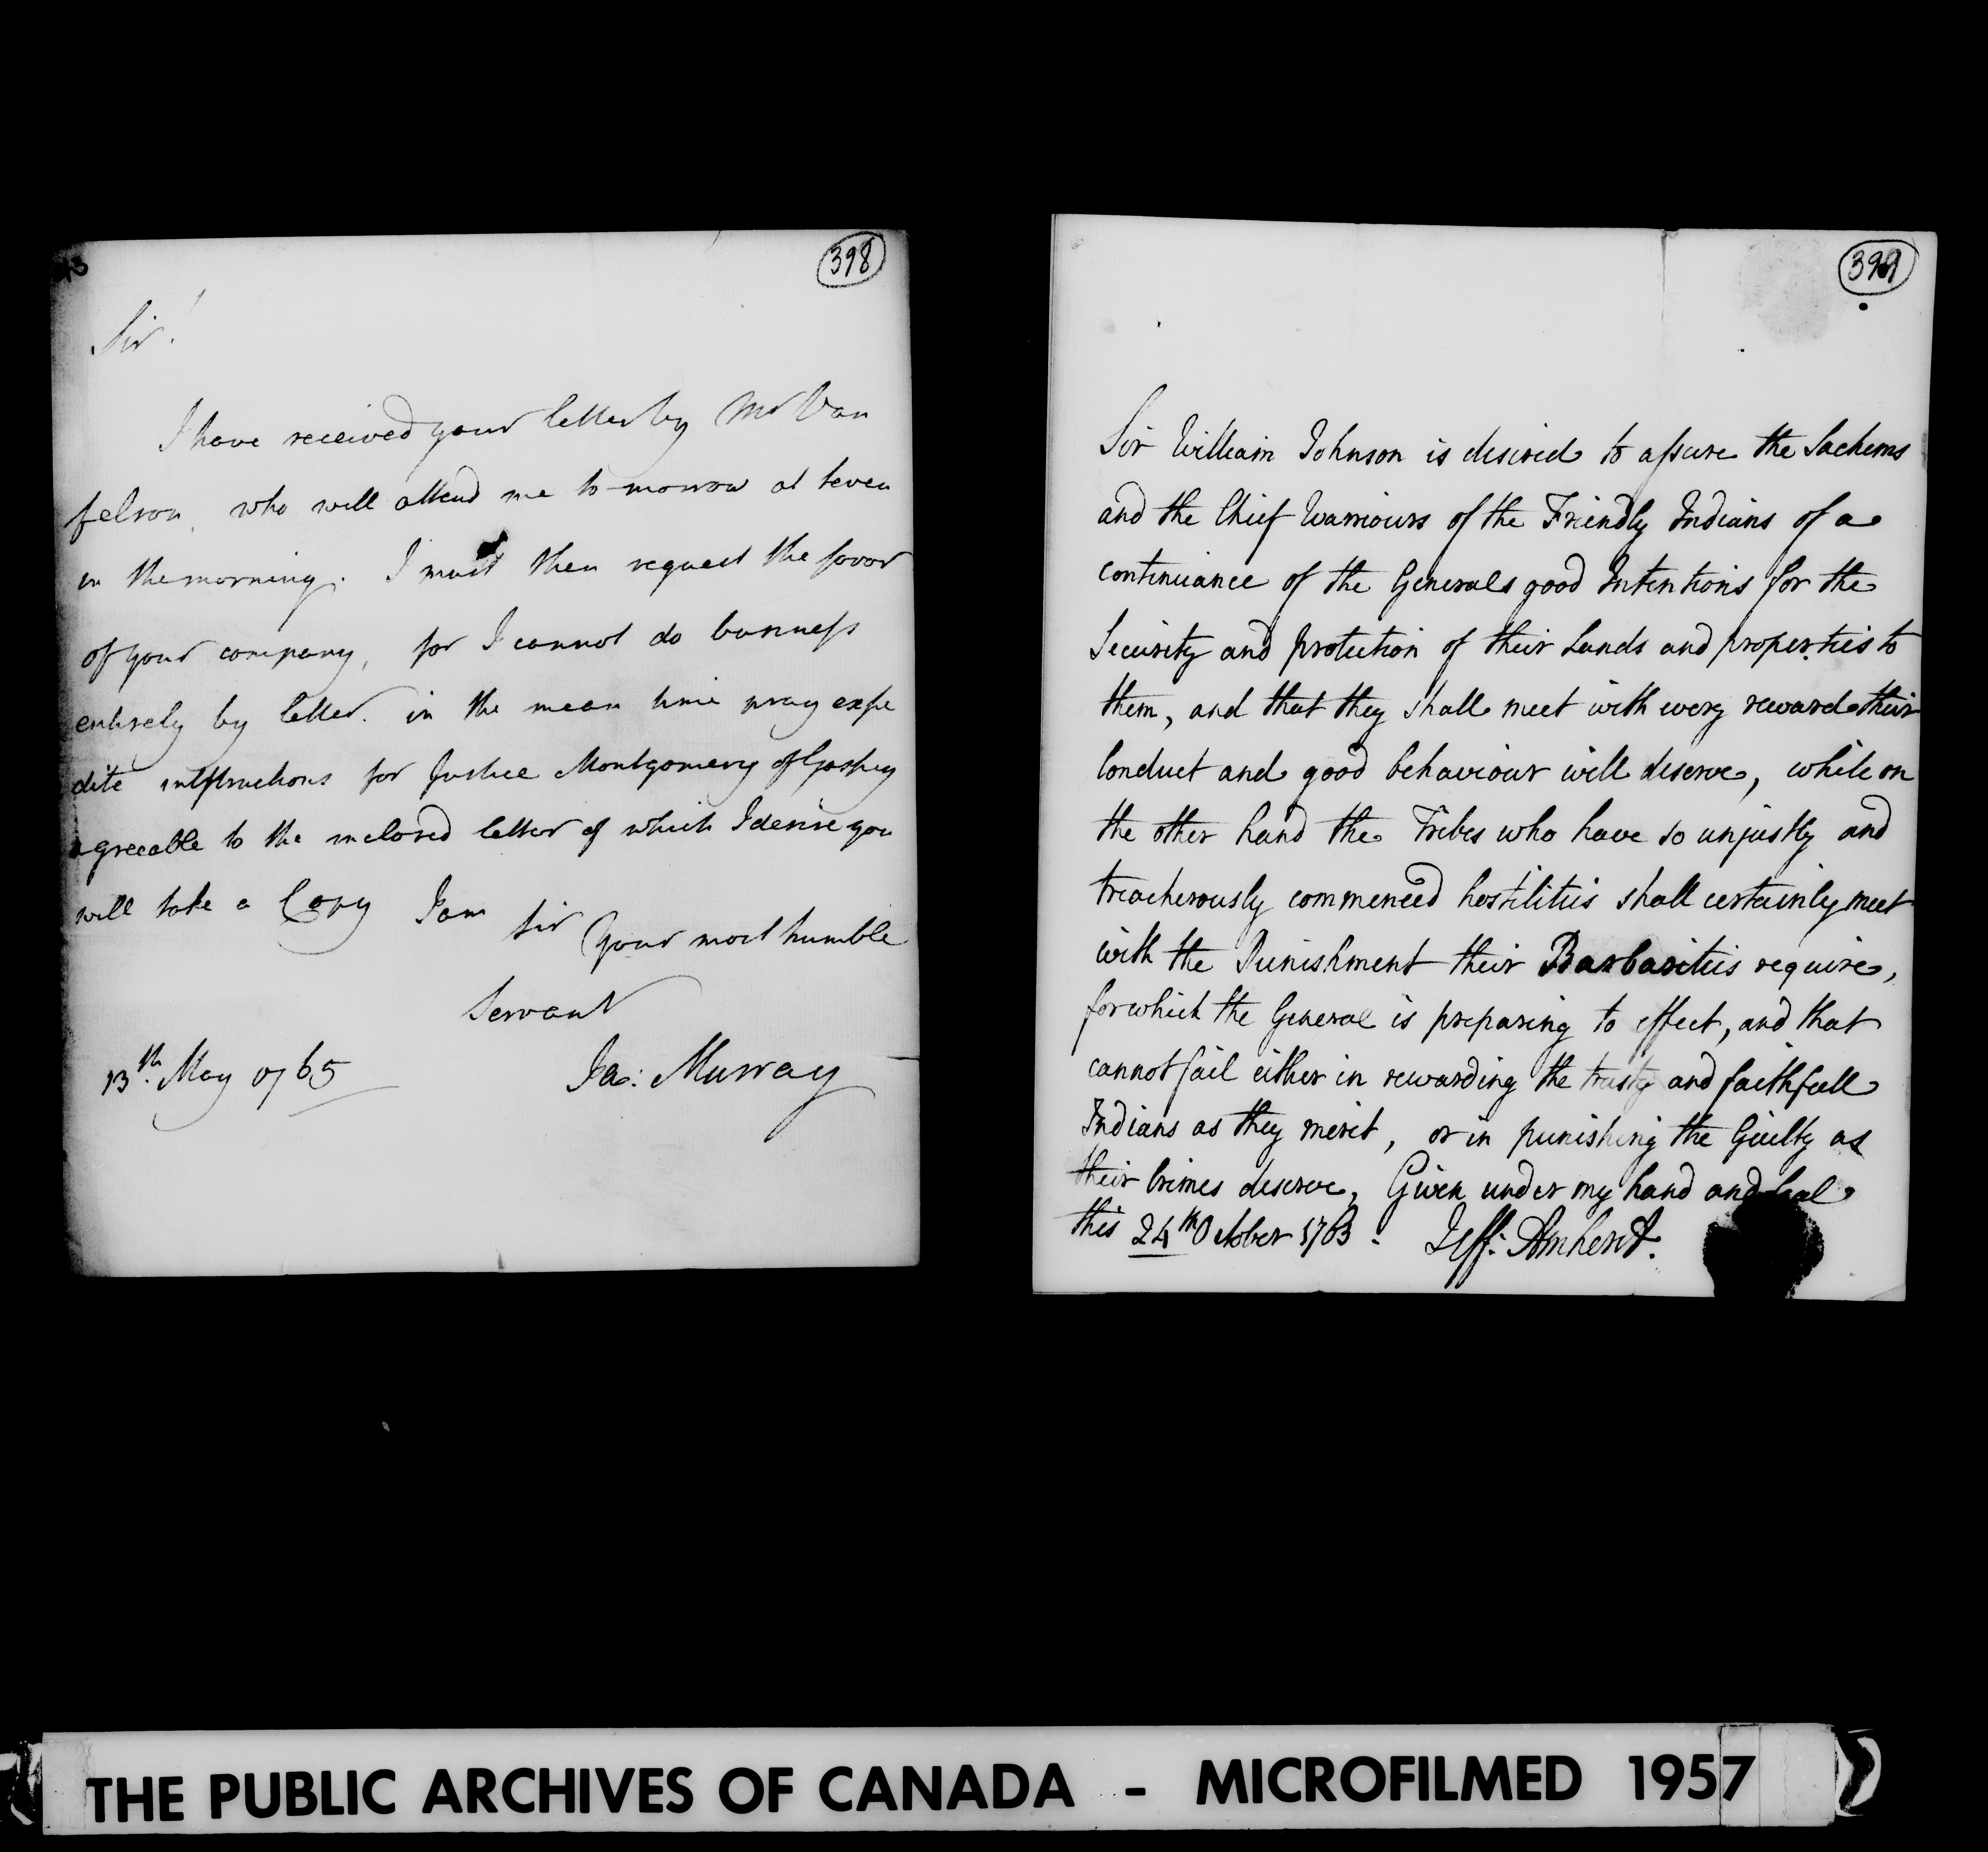 398
Sir!
I have received your letter by Mr Van
felson, who will attend me to-morrow at seven
in the morning. I must then request the favor
of your company, for I cannot do business
entirely by letter. in the mean time pray expe
dite instructions for Justice Montgomery of Gaspey
agreeable to the inclosed letter of which I desire you
will take a Copy I am
Sir Your most humble
Servant
13th. May 1765 Ja: Murray
399
Sir William Johnson is desired to assure the Sachems
and the Chief Warriours of the Friendly Indians of a
continuance of the Generals good Intentions for the
Security and protection of their Lands and properties to
them, and that they shall meet with every reward their
Conduct and good behaviour will deserve, while on
the other hand the Tribes who have so unjustly and
treacherously commenced hostilities shall certainly meet
with the Punishment their Barbarities require,
for which the General is preparing to effect, and that
cannot fail either in rewarding the trusty and faithfull
Indians as they merit, or in punishing the Guilty as
their Crimes deserve, Given under my hand and Seal
this 24th October 1763. Jeff: Amherst.
THE PUBLIC ARCHIVES OF CANADA - MICROFILMED 1957